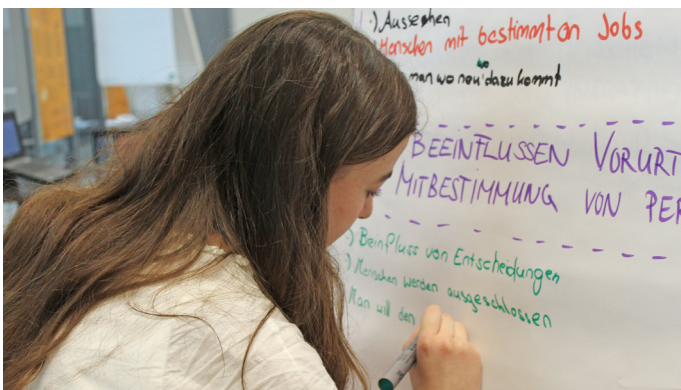 ·) Aussehen
Menschen mit bestimmten Jobs
wo
man wo neu dazu kommt
BEEINFLUSSEN VORURT
MITBESTIMMUNG VON PER
·) Beinfluss von Entscheidungen
·) Menschen werden ausgeschlossen
Man will den